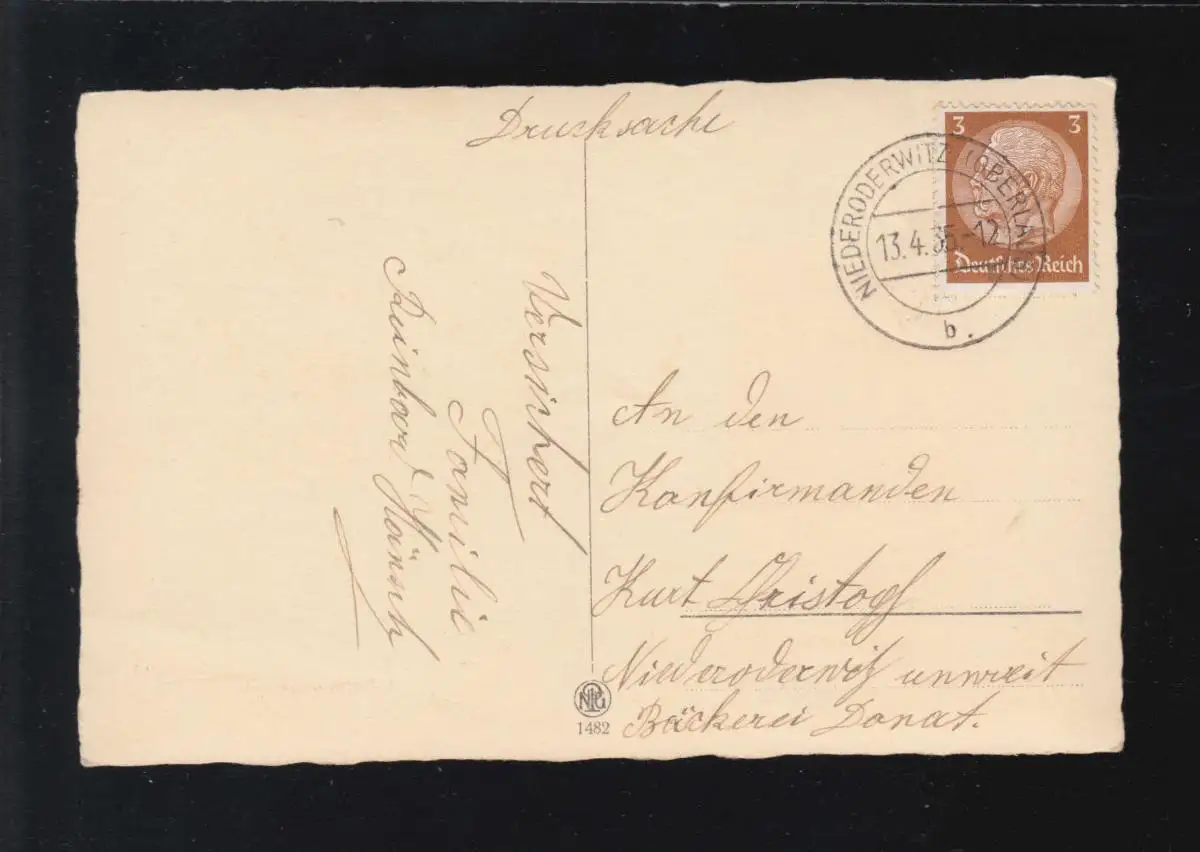 Drucksache
3 3
Deutsches Reich
NIEDERODERWITZ (OBERLAU
13.4.35.-12
b.
Versichert
Familie
Reinhard Hänsch
An den
Konfirmanden
Kurt Christoph
Niederoderwitz unweit
Bäckerei Donat.
NPG
1482